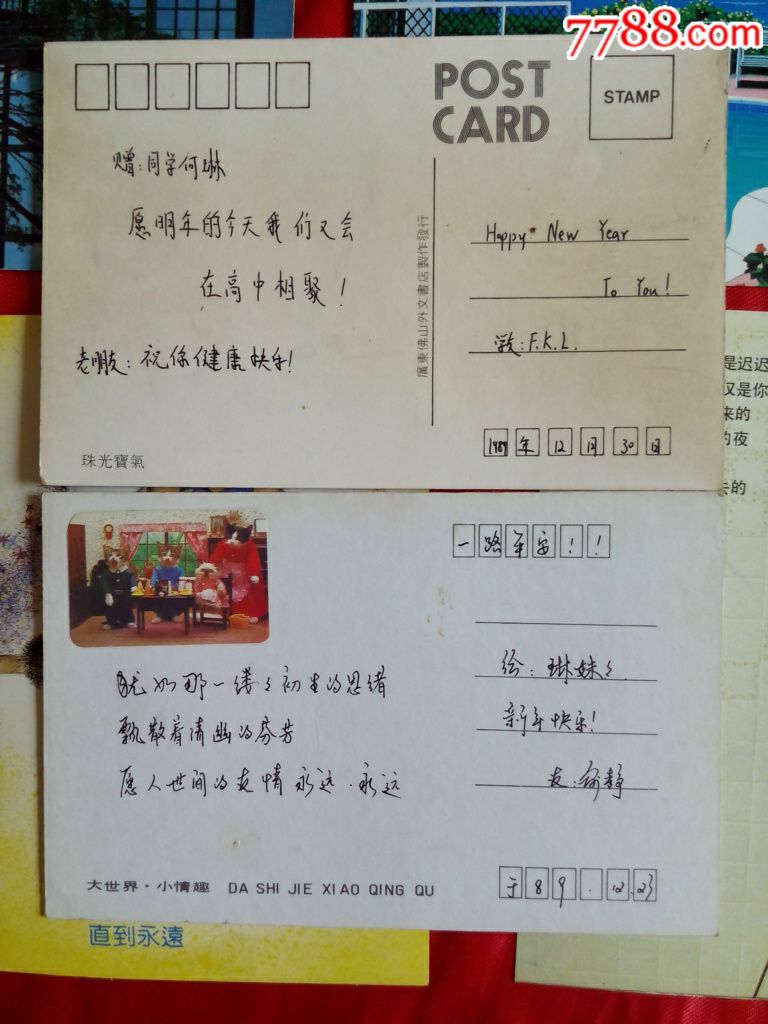 7788.com
POST
CARD
STAMP
赠:同学何琳
愿明年的今天我们又会
在高中相聚!
老朋友:祝你健康快乐!
珠光寶氣
廣東佛山外文書店製作發行
Happy New Year
To You!
F.K.L.
1989年12月30日
是迟迟
又是你
来的
的夜
去的
一路平安!!
犹如那一缕々初生的思绪
飘散着清幽的芬芳
愿人世间的友情永远.永远
给:琳妹々.
新年快乐!
友:何静
于89.12.23
大世界·小情趣 DA SHI JIE XIAO QING QU
直到永遠